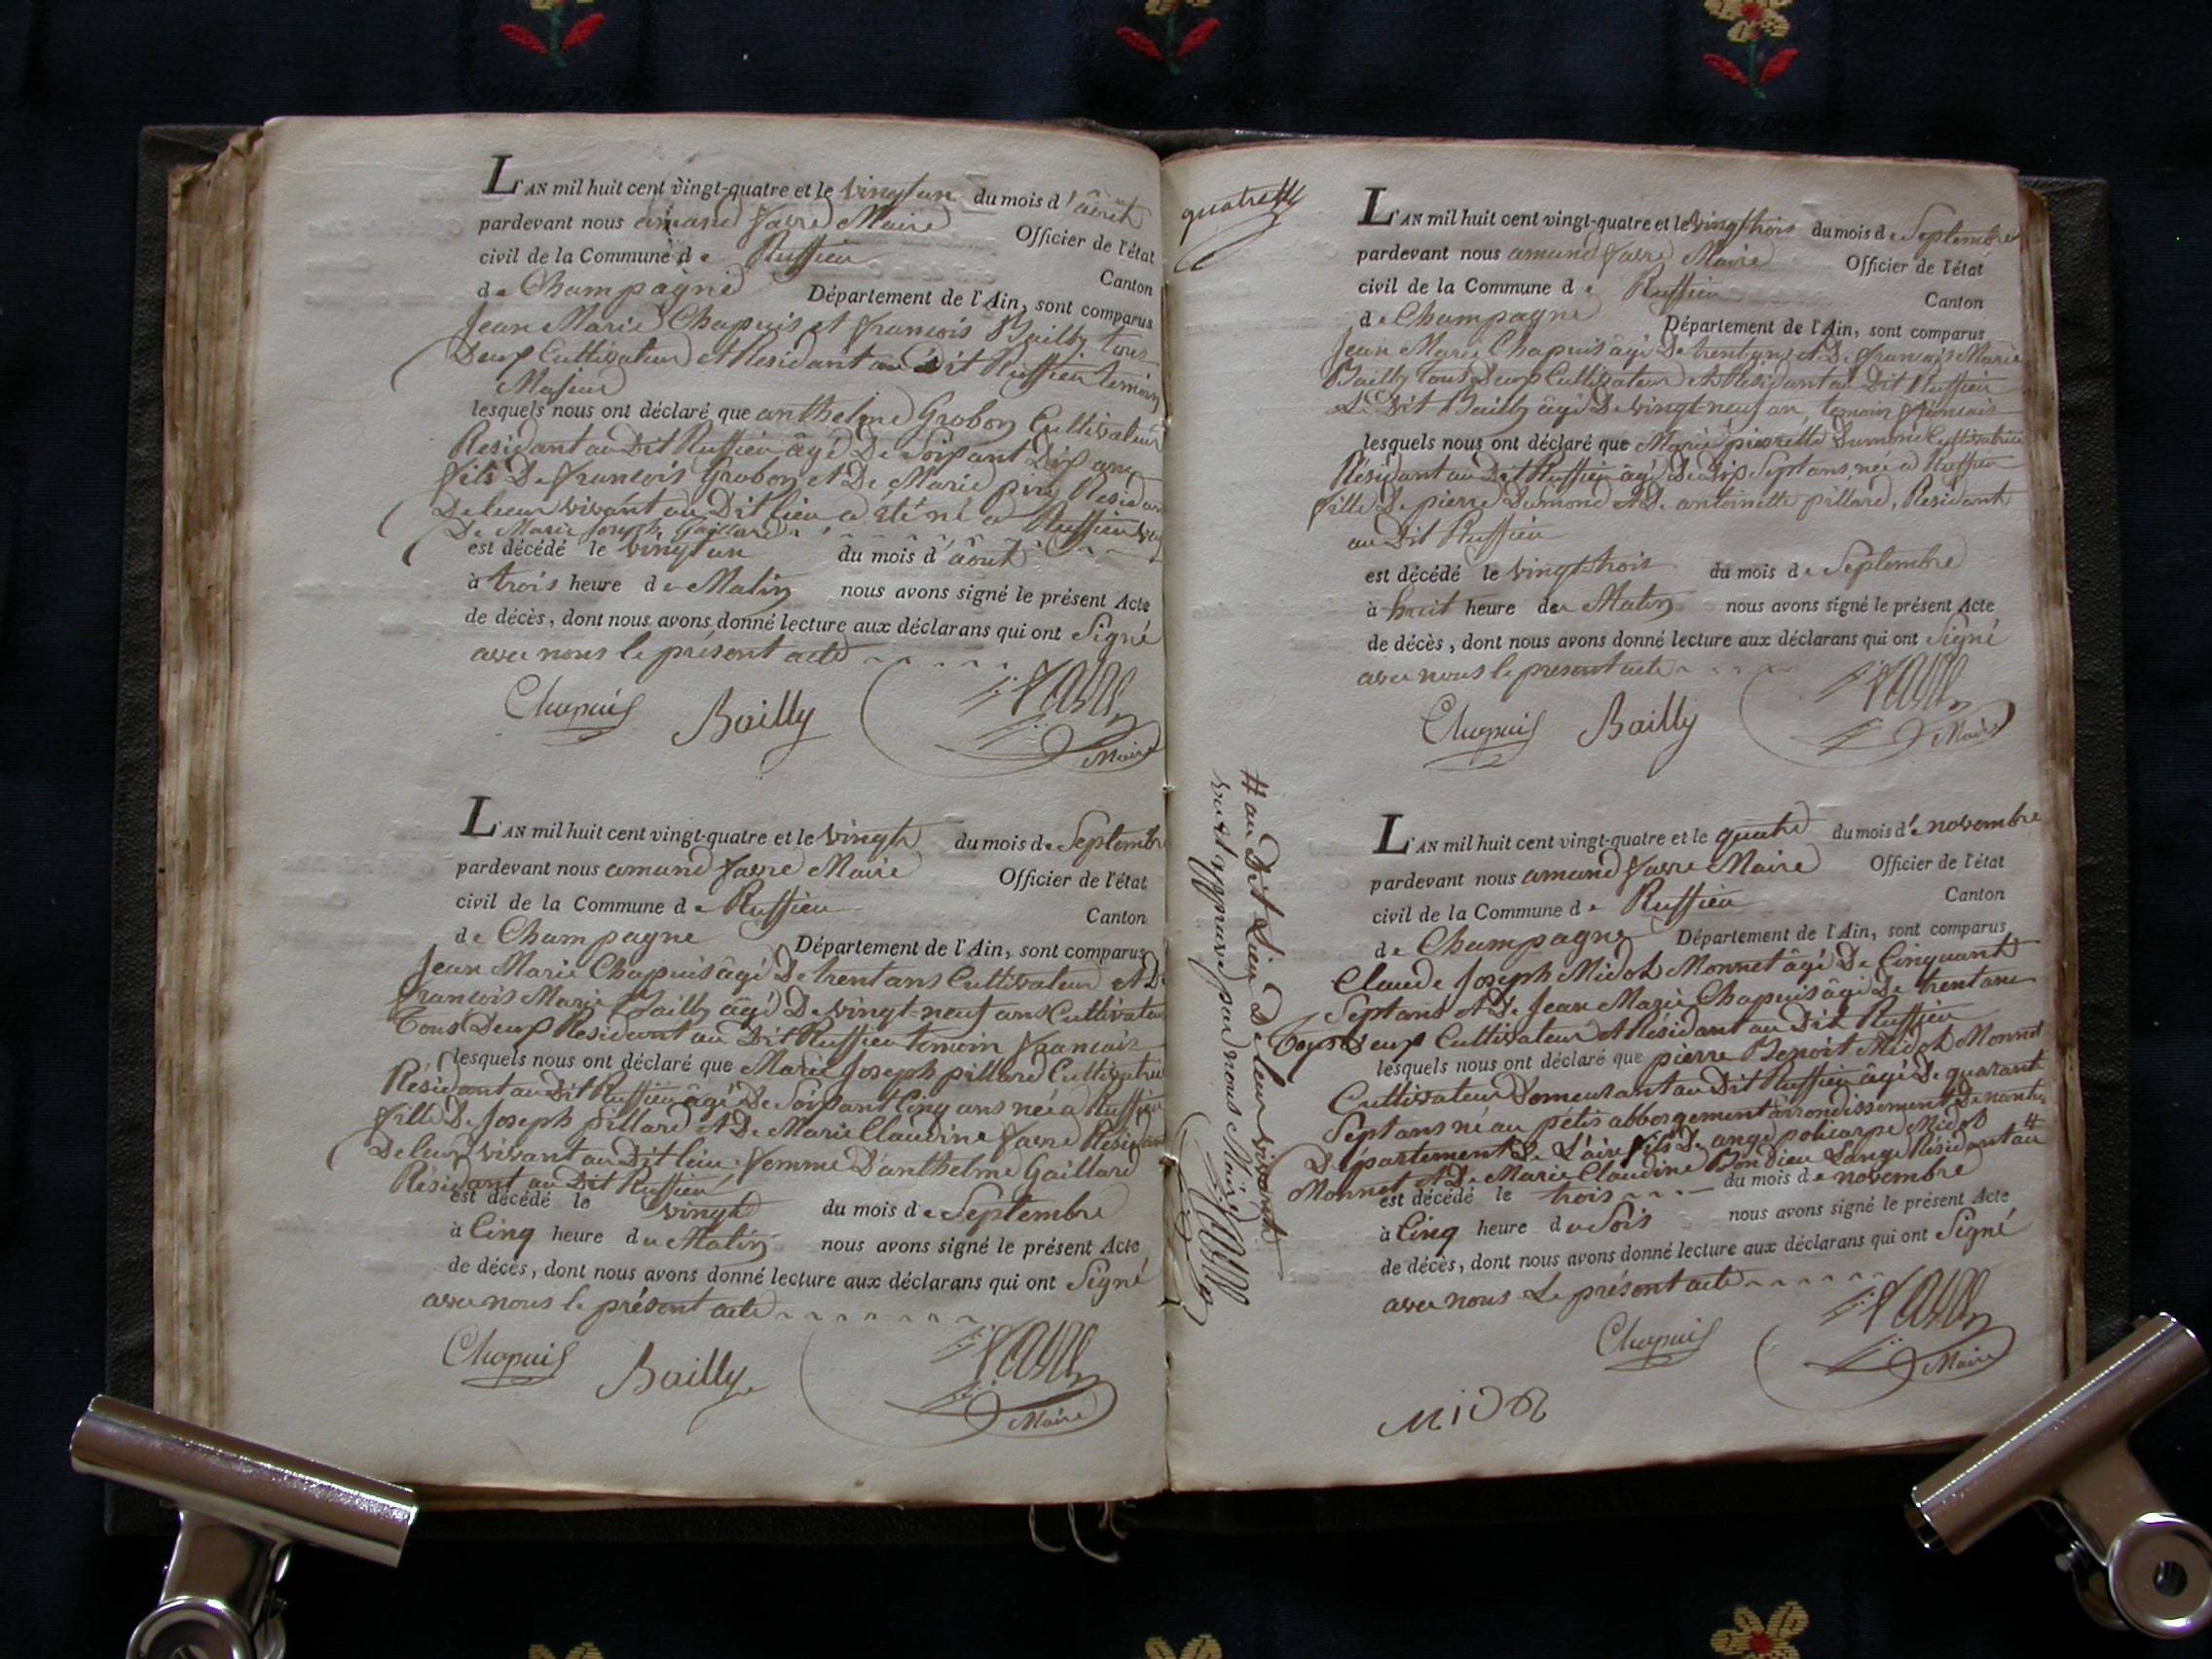 L'AN mil huit cent vingt-quatre et le vingt un du mois d'août
pardevant nous amand favre Maire Officier de l'état
civil de la Commune de Ruffieu Canton
de Champagne Département de l'Ain, sont comparus
Jean Marie Chapuis et francois Bailly tous
Deux Cultivateur et Residant au Dit Ruffieu temoin
Majeur
lesquels nous ont déclaré que anthelme Grobon Cultivateur
Residant au Dit Ruffieu âgé De Soixant Dix ans
fils De francois Grobon et De Marie Residant
De leur vivant au Dit lieu a été né a Ruffieu
De Marie Joseph Gaillard
est décédé le vingt un du mois d'août
à trois heure du Matin nous avons signé le présent Acte
de décès, dont nous avons donné lecture aux déclarans qui ont Signé
avec nous le présent acte
Chapuis Bailly favre
Maire
L'AN mil huit cent vingt-quatre et le vingt du mois de Septembre
pardevant nous amand favre Maire Officier de l'état
civil de la Commune de Ruffieu Canton
de Champagne Département de l'Ain, sont comparus
Jean Marie Chapuis âgé De trent ans Cultivateur et De
francois Marie Bailly âgé De vingt-neuf ans Cultivateur
Tous Deux Residant au Dit Ruffieu temoin francais
lesquels nous ont déclaré que Marie Joseph pillard Cultivatrice
Résidant au Dit Ruffieu âgé De Soixant Cinq ans née a Ruffieu
fille De Joseph pillard et De Marie Claudine favre Résidant
De leur vivant au Dit lieu femme D'anthelme Gaillard
Résidant au Dit Ruffieu
est décédé le vingt du mois de Septembre
à Cinq heure du Matin nous avons signé le présent Acte
de décès, dont nous avons donné lecture aux déclarans qui ont Signé
avec nous le présent acte
Chapuis Bailly favre
Maire
quatre
L'AN mil huit cent vingt-quatre et le vingt trois du mois de Septembre
pardevant nous amand favre Maire Officier de l'état
civil de la Commune de Ruffieu Canton
de Champagne Département de l'Ain, sont comparus
Jean Marie Chapuis âgé De trent ans et De francois Marie
Bailly tous Deux Cultivateur et Residant au Dit Ruffieu
Le Dit Bailly âgé De vingt neuf an, temoin francais
lesquels nous ont déclaré que Marie pierrette Dumond Cultivatrice
Résidant au Dit Ruffieu âgé De Dix Sept ans, née a Ruffieu
fille De pierre Dumond et De antoinette pillard, Residant
au Dit Ruffieu
est décédé le vingt trois du mois de Septembre
à huit heure du Matin nous avons signé le présent Acte
de décès, dont nous avons donné lecture aux déclarans qui ont Signé
avec nous le present acte
Chapuis Bailly favre
Maire
L'AN mil huit cent vingt-quatre et le quatre du mois de novembre
pardevant nous amand favre Maire Officier de l'état
civil de la Commune de Ruffieu Canton
de Champagne Département de l'Ain, sont comparus
Claude Joseph Midol Monnet âgé De Cinquant
Sept ans et De Jean Marie Chapuis âgé De trent ans
Tous Deux Cultivateur et Résidant au Dit Ruffieu
lesquels nous ont déclaré que pierre Benoit Midol Monnet
Cultivateur Domeurant au Dit Ruffieu âgé De quarant
Sept ans né au pétis abborgement arrondissement De nantua
Département De L'aire fils De ange policarpe Midol
Monnet et De Marie Claudine Bondieu Lange Résidant au #
est décédé le trois du mois de novembre
à Cinq heure du Soir nous avons signé le présent Acte
de décès, dont nous avons donné lecture aux déclarans qui ont Signé
avec nous Le présent acte
Chapuis favre
Maire
MiDol
# au Dit Lieu De leur vivant
approuvé par nous Maire favre